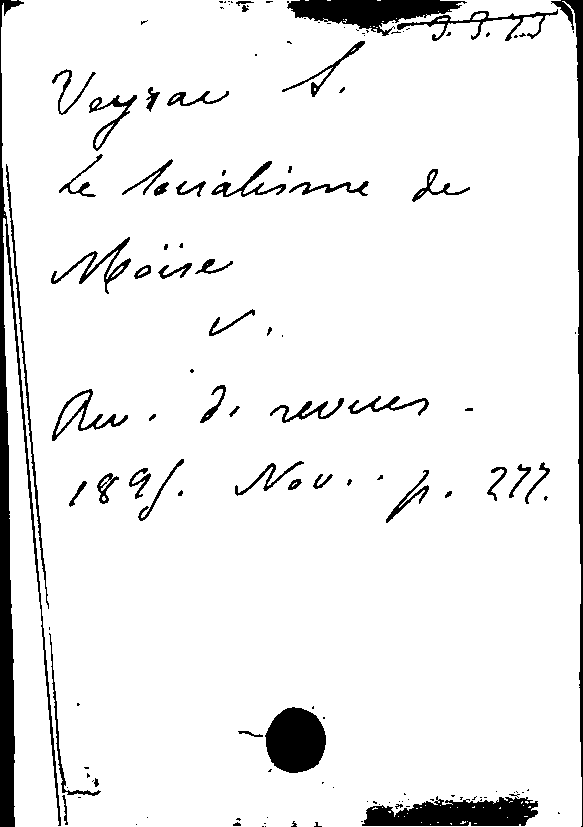 Veyrac S.
Le socialisme de
Moïse
v.
Rev. d. revues.
1895. Nov.. p. 277.